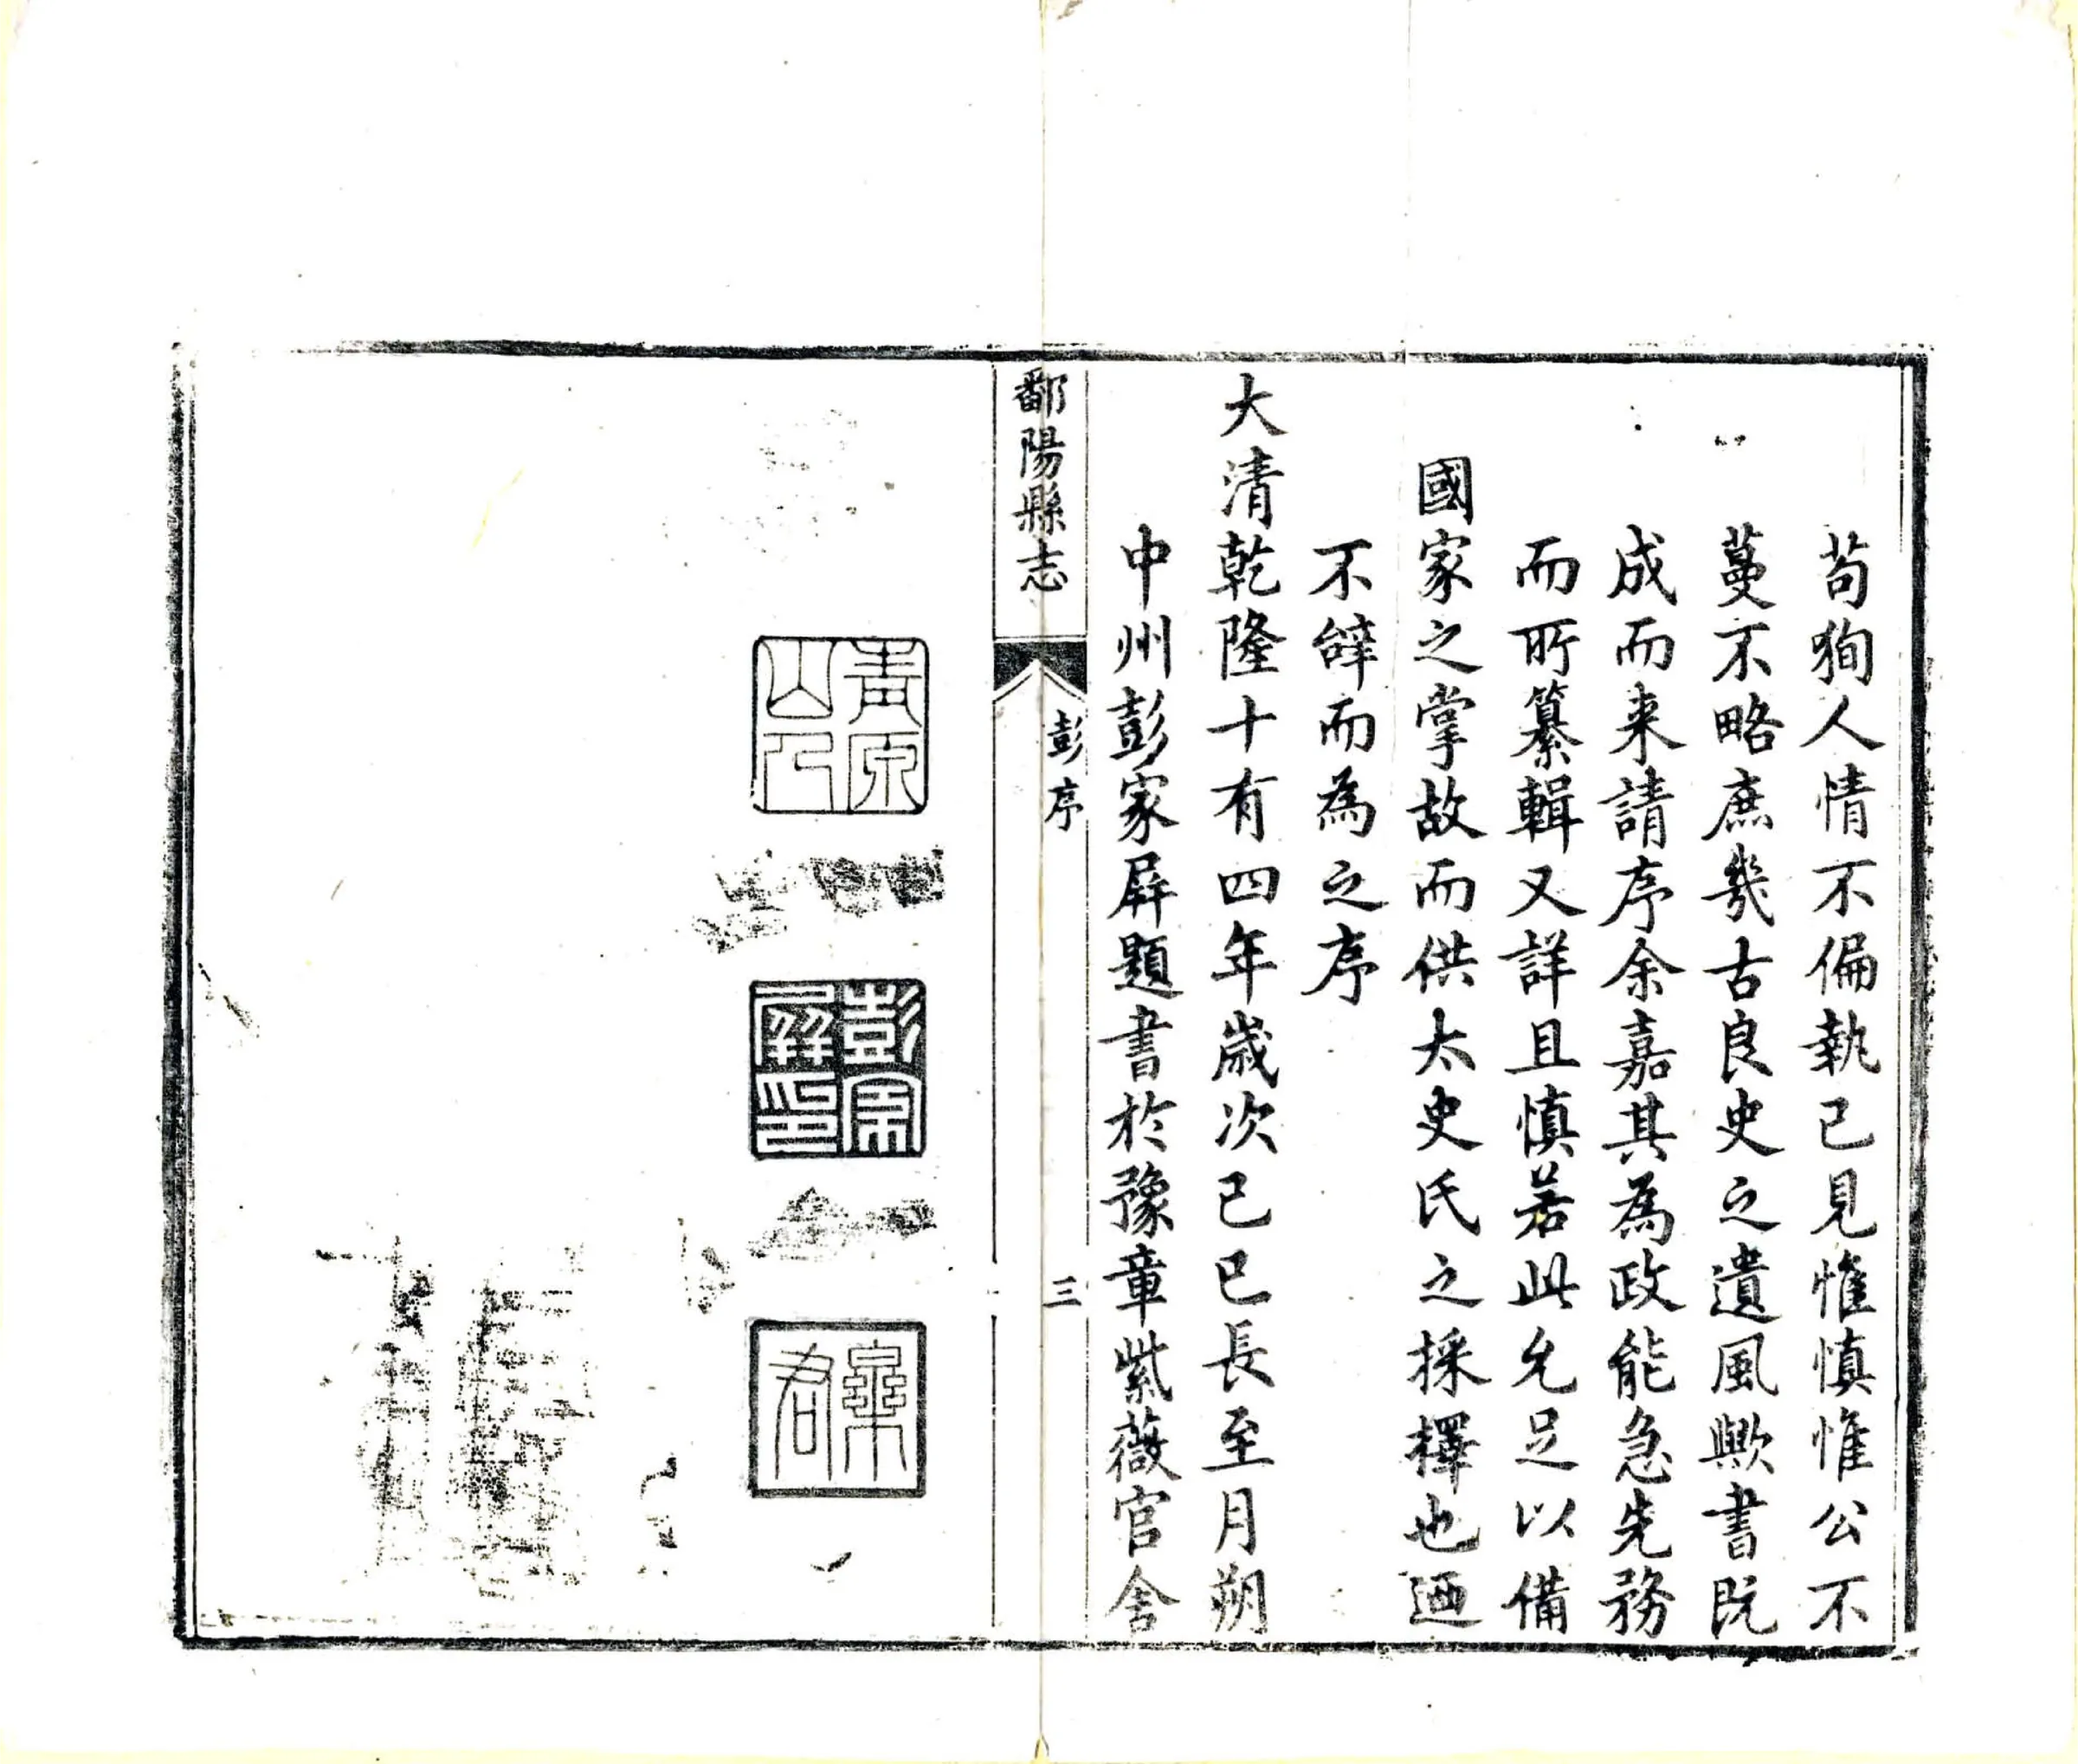 苟狥人情不偏執己見惟慎惟公不
蔓不略庶㡬古良史之遺風歟書既
成而来請序余嘉其為政能急先務
而所纂輯又詳且慎若此允足以備
國家之掌故而供太史氏之採擇也迺
不辝而為之序
大清乾隆十有四年歲次己巳長至月朔
中州彭家屏題書於豫章紫薇官舍
鄱陽縣志
彭序
三
青原山人
彭家屏印
樂君